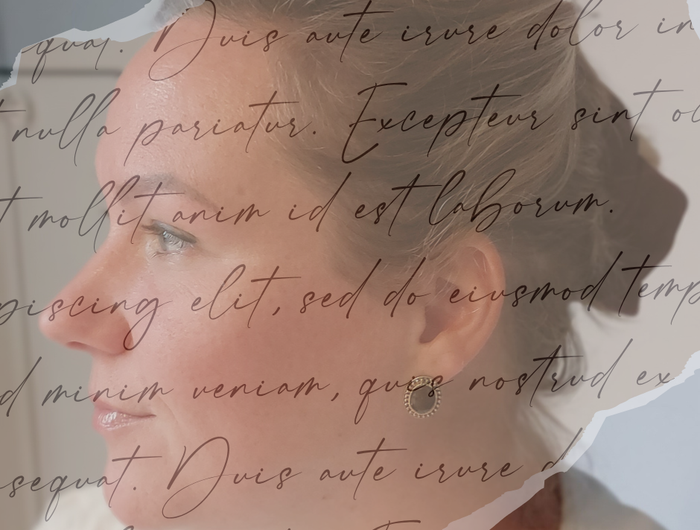 quat. Duis aute irure dolor in
nulla pariatur. Excepteur sint
mollit anim id est laborum.
piscing elit, sed do eiusmod temp
d minim veniam, quis nostrud ex
sequat. Duis aute irure d